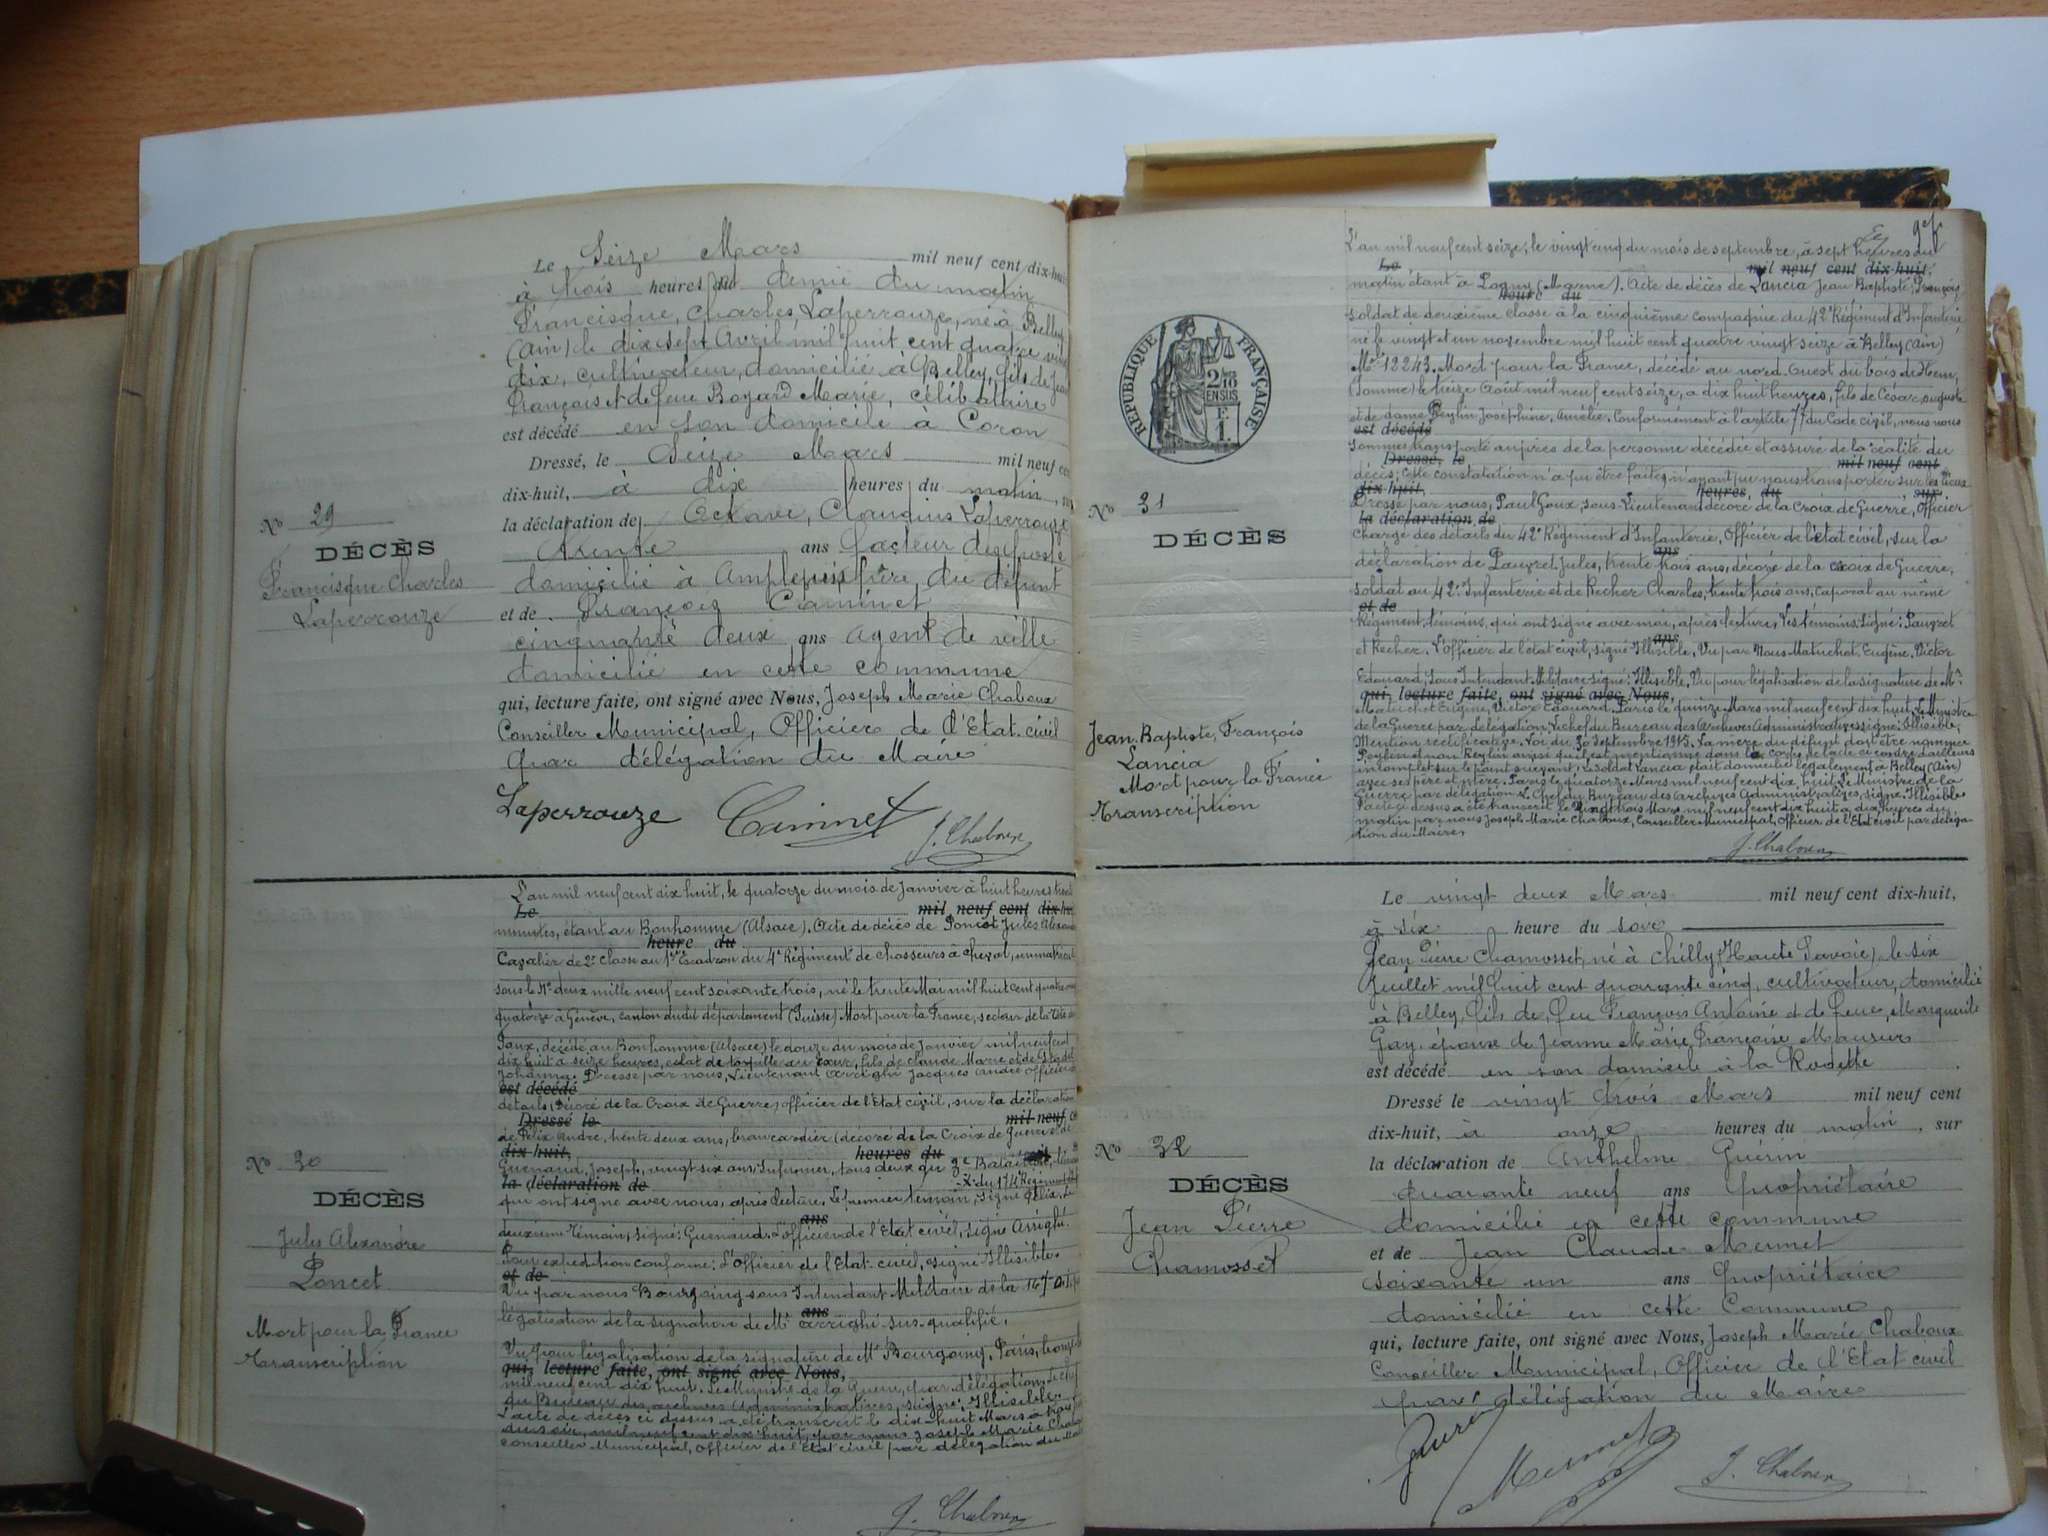 Le Seize Mars mil neuf cent dix-huit
à trois heures et demie du matin
Francisque, Charles, Laperrouze, né à Belley
(Ain) le dix sept Avril mil huit cent quatre vingt
dix, cultivateur, domicilié à Belley, fils de Jean
François et de feue Boyard Marie, célibataire
est décédé en son domicile à Coron
Dressé, le Seize Mars mil neuf cent
dix-huit, à dix heures du matin, sur
la déclaration de Octave, Claudius Laperrouze
trente ans facteur des postes
domicilié à Amplepuis frère du défunt
et de François Caminet
cinquante deux ans agent de ville
domicilié en cette commune
qui, lecture faite, ont signé avec Nous, Joseph Marie Chaboux
Conseiller Municipal, Officier de l'Etat civil
par délégation du Maire
Laperrouze Caminet J. Chaboux
No 29
DÉCÈS
Francisque Charles
Laperrouze
L'an mil neuf cent dix huit, le quatorze du mois de Janvier à huit heures trente
Le mil neuf cent dix-huit
minutes, étant au Bonhomme (Alsace). Acte de décès de Poncet Jules Alexandre
heure du
Cavalier de 2e classe au 1er Escadron du 4e Régiment de chasseurs à cheval, immatriculé
sous le No deux mille neuf cent soixante trois, né le trente Mai mil huit cent quatre vingt
quatorze à Genève, canton dudit département (Suisse) Mort pour la France, secteur de la tête des
Faux, décédé au Bonhomme (Alsace) le douze du mois de Janvier mil neuf cent
dix huit à seize heures, éclat de torpille au cœur, fils de Claude Marie et de
Johanna. Dressé par nous, Lieutenant Arrighi Jacques André officier
est décédé
détails, décoré de la Croix de Guerre, officier de l'Etat civil, sur la déclaration
Dressé le mil neuf
de Félix André, trente deux ans, brancardier (décoré de la Croix de Guerre et de
dix huit, heures du
Guenaud, Joseph, vingt six ans Infirmier, tous deux du 3e Bataillon,
la déclaration de X. du 174 Régiment
qui ont signé avec nous, après lecture. Le premier témoin, Signé Félix. Le
ans
deuxième témoin, signé: Guenaud. L'officier de l'Etat civil, signé Arrighi.
Pour expédition conforme: L'officier de l'Etat civil, signé Illisible.
et de
Vu par nous Bourgoing sous Intendant Militaire de la
ans
légalisation de la signature de Mr Arrighi sus-qualifié.
Vu pour légalisation de la signature de Mr Bourgoing. Paris,
qui, lecture faite, ont signé avec Nous,
mil neuf cent dix huit. Le Ministre de la Guerre, par délégation, le chef
du Bureau des archives administratives, signé: Illisible.
L'acte de décès ci dessus a été transcrit le dix-huit Mars à trois
du soir, mil neuf cent dix huit, par nous Joseph Marie Chaboux
Conseiller Municipal, officier de l'Etat civil par délégation du Maire
J. Chaboux
No 30
DÉCÈS
Jules Alexandre
Poncet
Mort pour la France
Transcription
L'an mil neuf cent seize, le vingt cinq du mois de septembre, à sept heures du
Le mil neuf cent dix-huit,
matin étant à Pogny (Marne). Acte de décès de Lancia Jean Baptiste, François
heure du
soldat de deuxième classe à la cinquième compagnie du 42e Régiment d'Infanterie
né le vingt et un novembre mil huit cent quatre vingt seize à Belley (Ain)
Mle 12243. Mort pour la France, décédé au nord-ouest du bois de Hem,
(Somme) le treize Août mil neuf cent seize, à dix huit heures, fils de César auguste
et de dame Peylin Joséphine, Amélie. Conformément à l'article 77 du Code civil, nous nous
est décédé
sommes transporté auprès de la personne décédée et assuré de la réalité du
Dressé, le mil neuf cent
décès, cette constatation n'a pu être faite, n'ayant pu nous transporter sur les lieux
dix-huit, heures, du sur
Dressé par nous, Paul Goux Sous-Lieutenant décoré de la Croix de Guerre, Officier
la déclaration de
Chargé des détails du 42e Régiment d'Infanterie, Officier de l'Etat civil, sur la
ans
déclaration de Pauzet Jules, trente trois ans, décoré de la croix de Guerre,
soldat au 42e Infanterie et de Recher Charles, trente trois ans, caporal au même
et de
Régiment témoins, qui ont signé avec moi, après lecture, Les témoins signé: Pauzet
ans
et Recher. L'officier de l'état civil, signé Illisible. Vu par Nous Matuchet Eugène, Victor
Edouard, sous Intendant Militaire signé: Illisible. Vu pour légalisation de la signature de Mr
qui, lecture faite, ont signé avec Nous,
Matuchet Eugène, Victor Edouard, Paris le quinze Mars mil neuf cent dix huit, Le Ministre
de la Guerre par délégation, Le chef du Bureau des Archives Administratives, signé: Illisible.
Mention rectificative. Loi du 30 septembre 1915. La mère du défunt doit être nommée
Peylin et non Reylin ainsi qu'il est mentionné dans le corps de l'acte ci contre d'ailleurs
incomplet sur le point suivant: Le soldat Lancia était domicilié légalement à Belley (Ain)
avec ses père et mère. Paris le quatorze Mars mil neuf cent dix huit, Le Ministre de la
Guerre par délégation Le Chef du Bureau des Archives Administratives, signé: Illisible.
L'acte ci dessus a été transcrit le vingt trois Mars mil neuf cent dix huit à dix heures du
matin par nous Joseph Marie Chaboux, Conseiller Municipal, Officier de l'Etat civil par déléga-
tion du Maire.
J. Chaboux
RÉPUBLIQUE FRANÇAISE
No 31
DÉCÈS
Jean-Baptiste, François
Lancia
Mort pour la France
Transcription
Le vingt deux Mars mil neuf cent dix-huit,
à six heure du soir
Jean Pierre Chamosset, né à Chilly (Haute Savoie) le six
Juillet mil huit cent quarante cinq, cultivateur, domicilié
à Belley, fils de feu François Antoine et de feue, Marguerite
Gay, époux de Jeanne Marie, Françoise
est décédé en son domicile à la Rodette
Dressé le vingt trois Mars mil neuf cent
dix-huit, à onze heures du matin, sur
la déclaration de Anthelme Guérin
quarante neuf ans propriétaire
domicilié en cette commune
et de Jean Claude Mermet
soixante un ans propriétaire
domicilié en cette Commune
qui, lecture faite, ont signé avec Nous, Joseph Marie Chaboux
Conseiller Municipal, Officier de l'Etat civil
par délégation du Maire
Guérin Mermet J. Chaboux
No 32
DÉCÈS
Jean Pierre
Chamosset